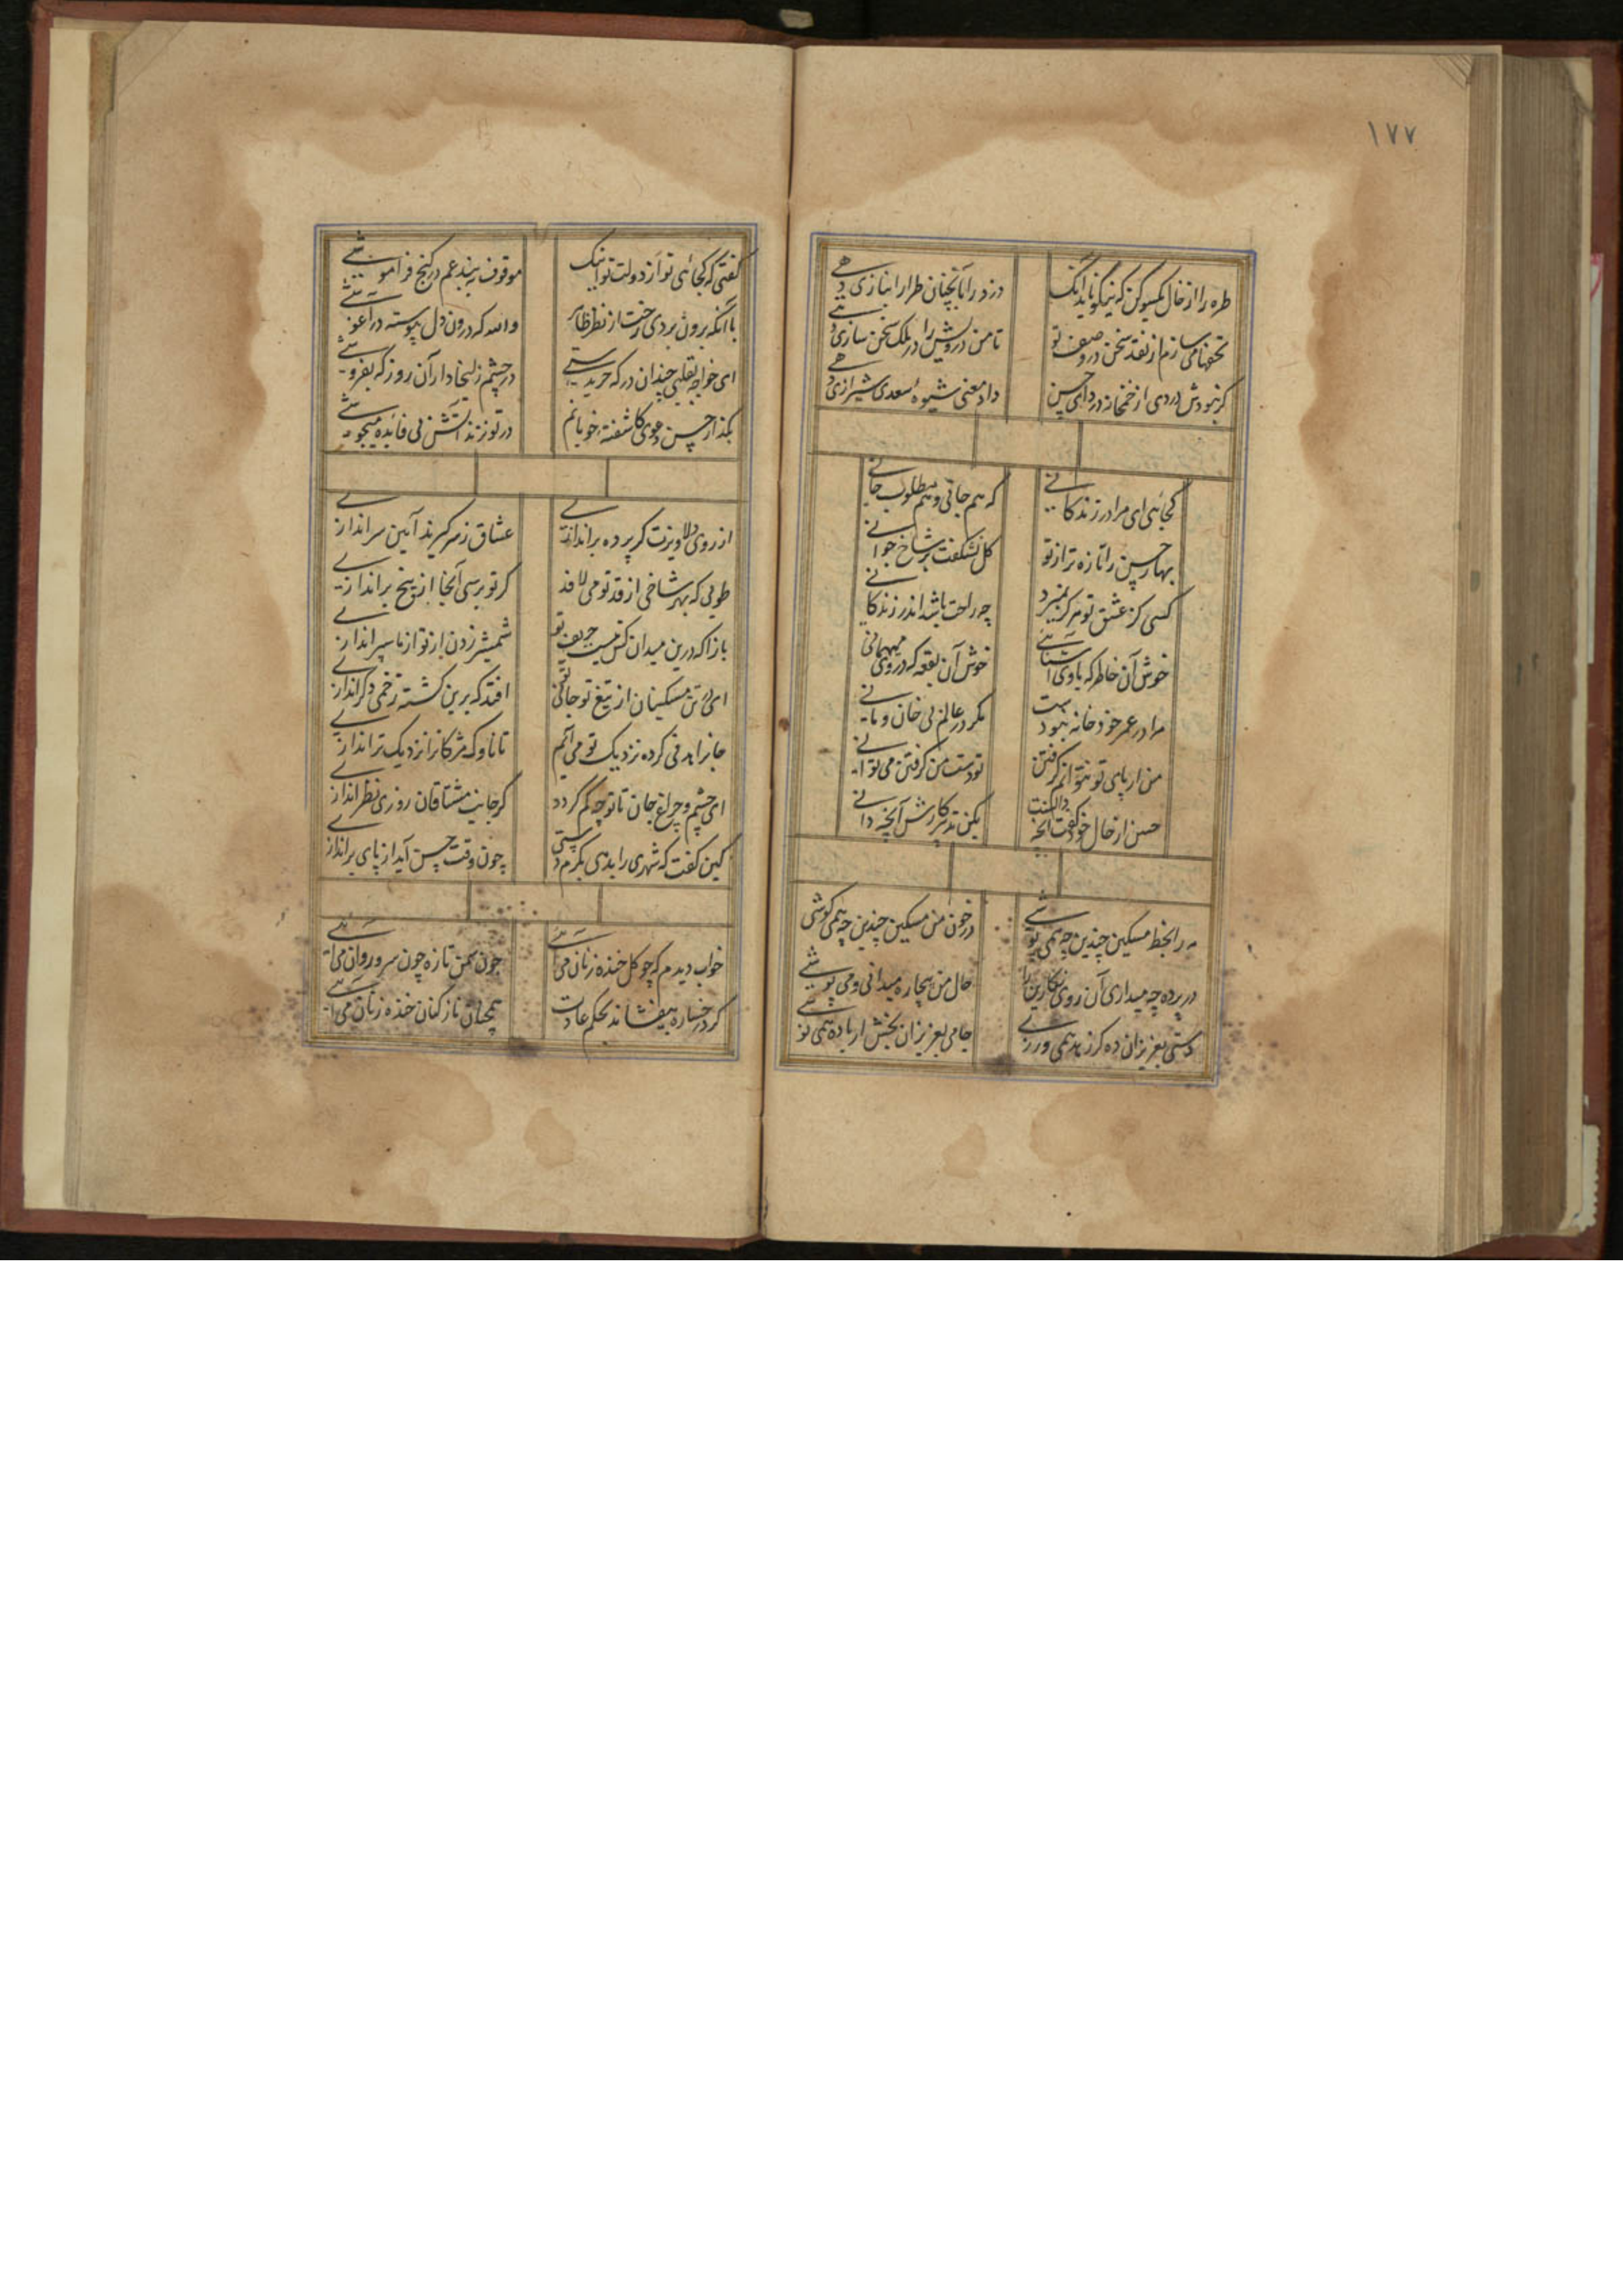 ۱۷۷
طره را از خال یکسو کن که نیکو ناید آنک
دزد را با آنچنان طرار انبازی دهی
تحفها می سازم از نقد سخن در وصف تو
تا من درویش را در ملک سخن سازی دهی
گر بنودش دردی از خمخانه دردای حسن
داد معنی شیوه سعدی شیرازی دهی
کجائی ای مرا در زندگانی
که هم جانی و هم مطلوب جانی
بهار حسن را تازه تر از تو
گل نشکفت بر شاخ جوانی
کسی کز عشق تو هرگز نمیرد
چه راحت باشد اندر زندگانی
خوش آن خاطر که باوی آشنائی
خوش آن بقعه که در وی میهمانی
مرا در عمر خود خانه نبودست
مگر در عالم بی خان و مانی
من ار پای تو نتوانم گرفتن
تو دست من گرفتن می توانی
حسن از حال خود گفت آنچه دانست
بکن تدبیر کارش آنچه دانی
در خون من مسکین چندین چه همی کوشی
در پرده چه میداری آن روی نگارین را
حال من بیچاره میدانی و می پوشی
دستی بعزیزان ده کز زهد همی ورزی
جامی بعزیزان بخش ار باده همی نوشی
گفتی که کجائی تو از دولت تو اینک
موقوف به بند غم در کنج فراموشی
با آنکه برون بردی رخت از نظر ظاهر
والله که درون دل پیوسته در آغوشی
ای خواجه بقلبی چندان در که خریدستی
در چشم زلیخا دار آن روز که بفروشی
بگذار حسن دعوی کاشفته خوبانم
در تو نزند آتش بی فائده میجوشی
از روی دلاویزت گر پرده براندازی
عشاق ز سر گیرند آیین سراندازی
طوبی که بهر شاخی از قد تو می لافد
گر تو برسی آنجا از بیخ براندازی
بازآ که درین میدان کس نیست حریف تو
شمشیر زدن از تو از ما سپراندازی
ای در تن مسکینان از تیغ تو جانی نو
افتد که برین کشته زخمی دگر اندازی
جانرا هدفی کرده نزدیک تو می آیم
تا ناوک مژگانرا نزدیک تر اندازی
ای چشم و چراغ جان تا تو چه کم گردد
گر جانب مشتاقان روزی نظر اندازی
کین گفت که شهری را بدهی بکرم دستی
چون وقت حسن آید از پای براندازی
خواب دیدم که چو گل خنده زنان می آئی
چون سمن تازه چون سرو روان می آئی
گرد رخساره بیفشاند بحکم عادت
همچنان ناز کنان خنده زنان می آئی